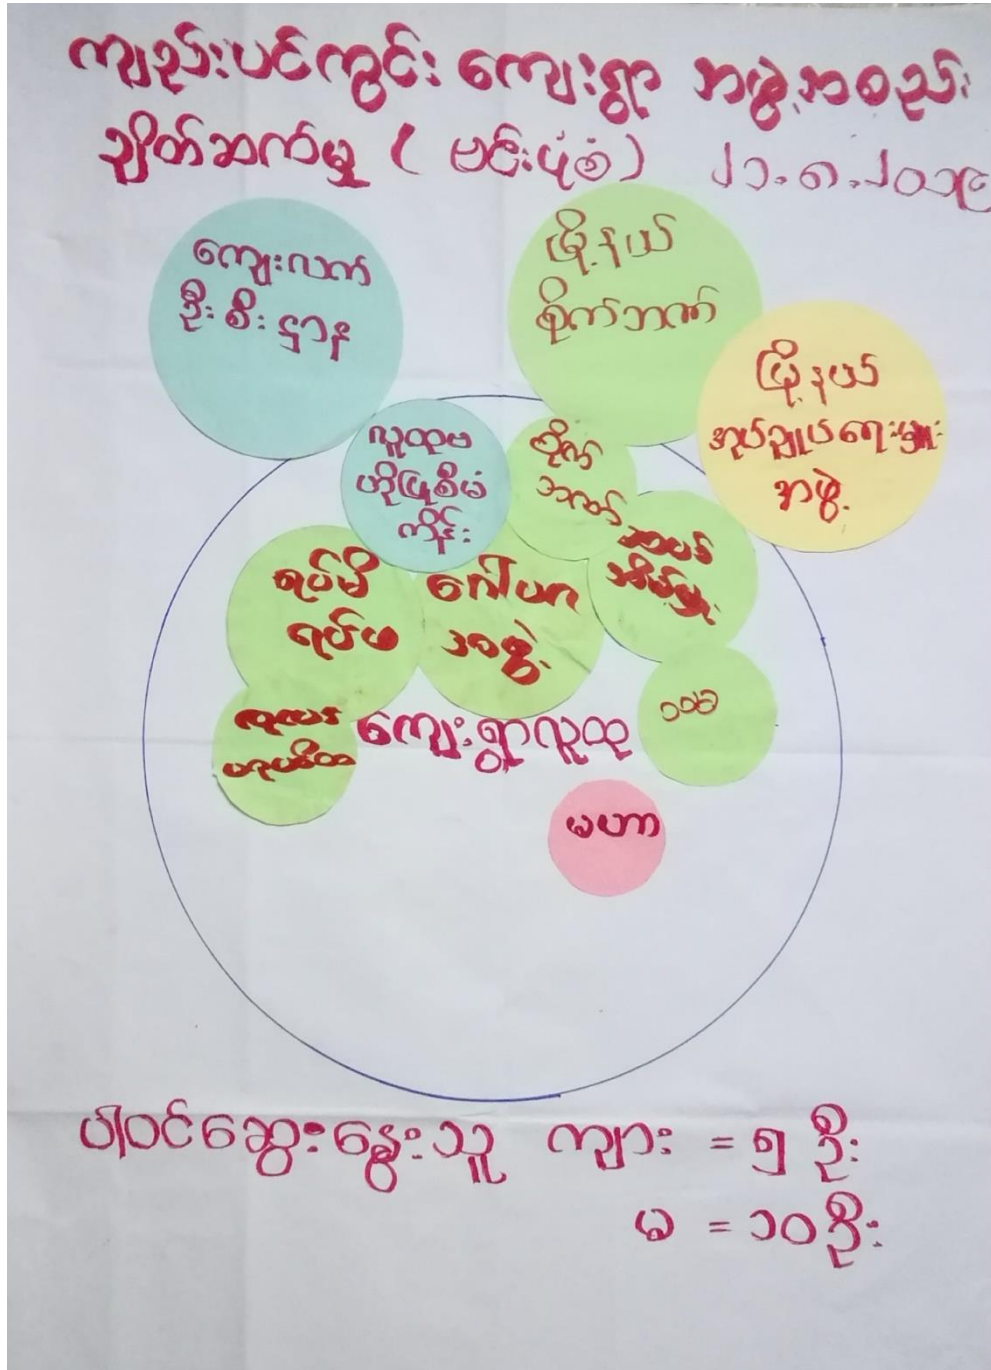 ကျည်းပင်ကွင်း ကျေးရွာ အဖွဲ့အစည်း
ချိတ်ဆက်မှု ( ဗင်းပုံစံ ) ၂၁.၈.၂၀၁၉
ကျေးလက်
ဦးစီးဌာန
မြို့နယ်
စိုက်ဘဏ်
မြို့နယ်
အုပ်ချုပ်ရေးမှူး
အဖွဲ့
လူထုဗ
ဟိုပြုစီမံ
ကိန်း
စိုက်
ဘဏ်
ရပ်မိ
ရပ်ဖ
ဂေါပက
အဖွဲ့
ဆယ်
အိမ်မှူး
ကျေးရွာလူထု
၁၀၆
မဟာ
ပါဝင်ဆွေးနွေးသူ ကျား = ၅ ဦး
မ = ၁၀ ဦး